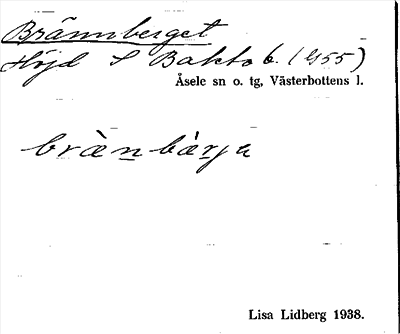 Brännberget
Höjd S Bakto b. (455)
Åsele sn o. tg, Västerbottens l.
bræ̀n bærja
Lisa Lidberg 1938.